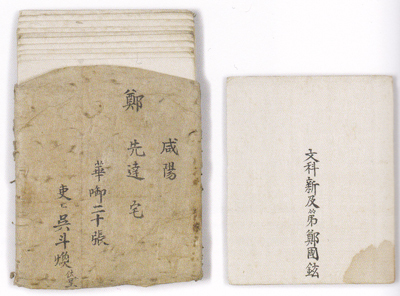 咸陽
鄭先達宅
華啣二十張
吏 吳斗煥
文科新及第鄭國鉉